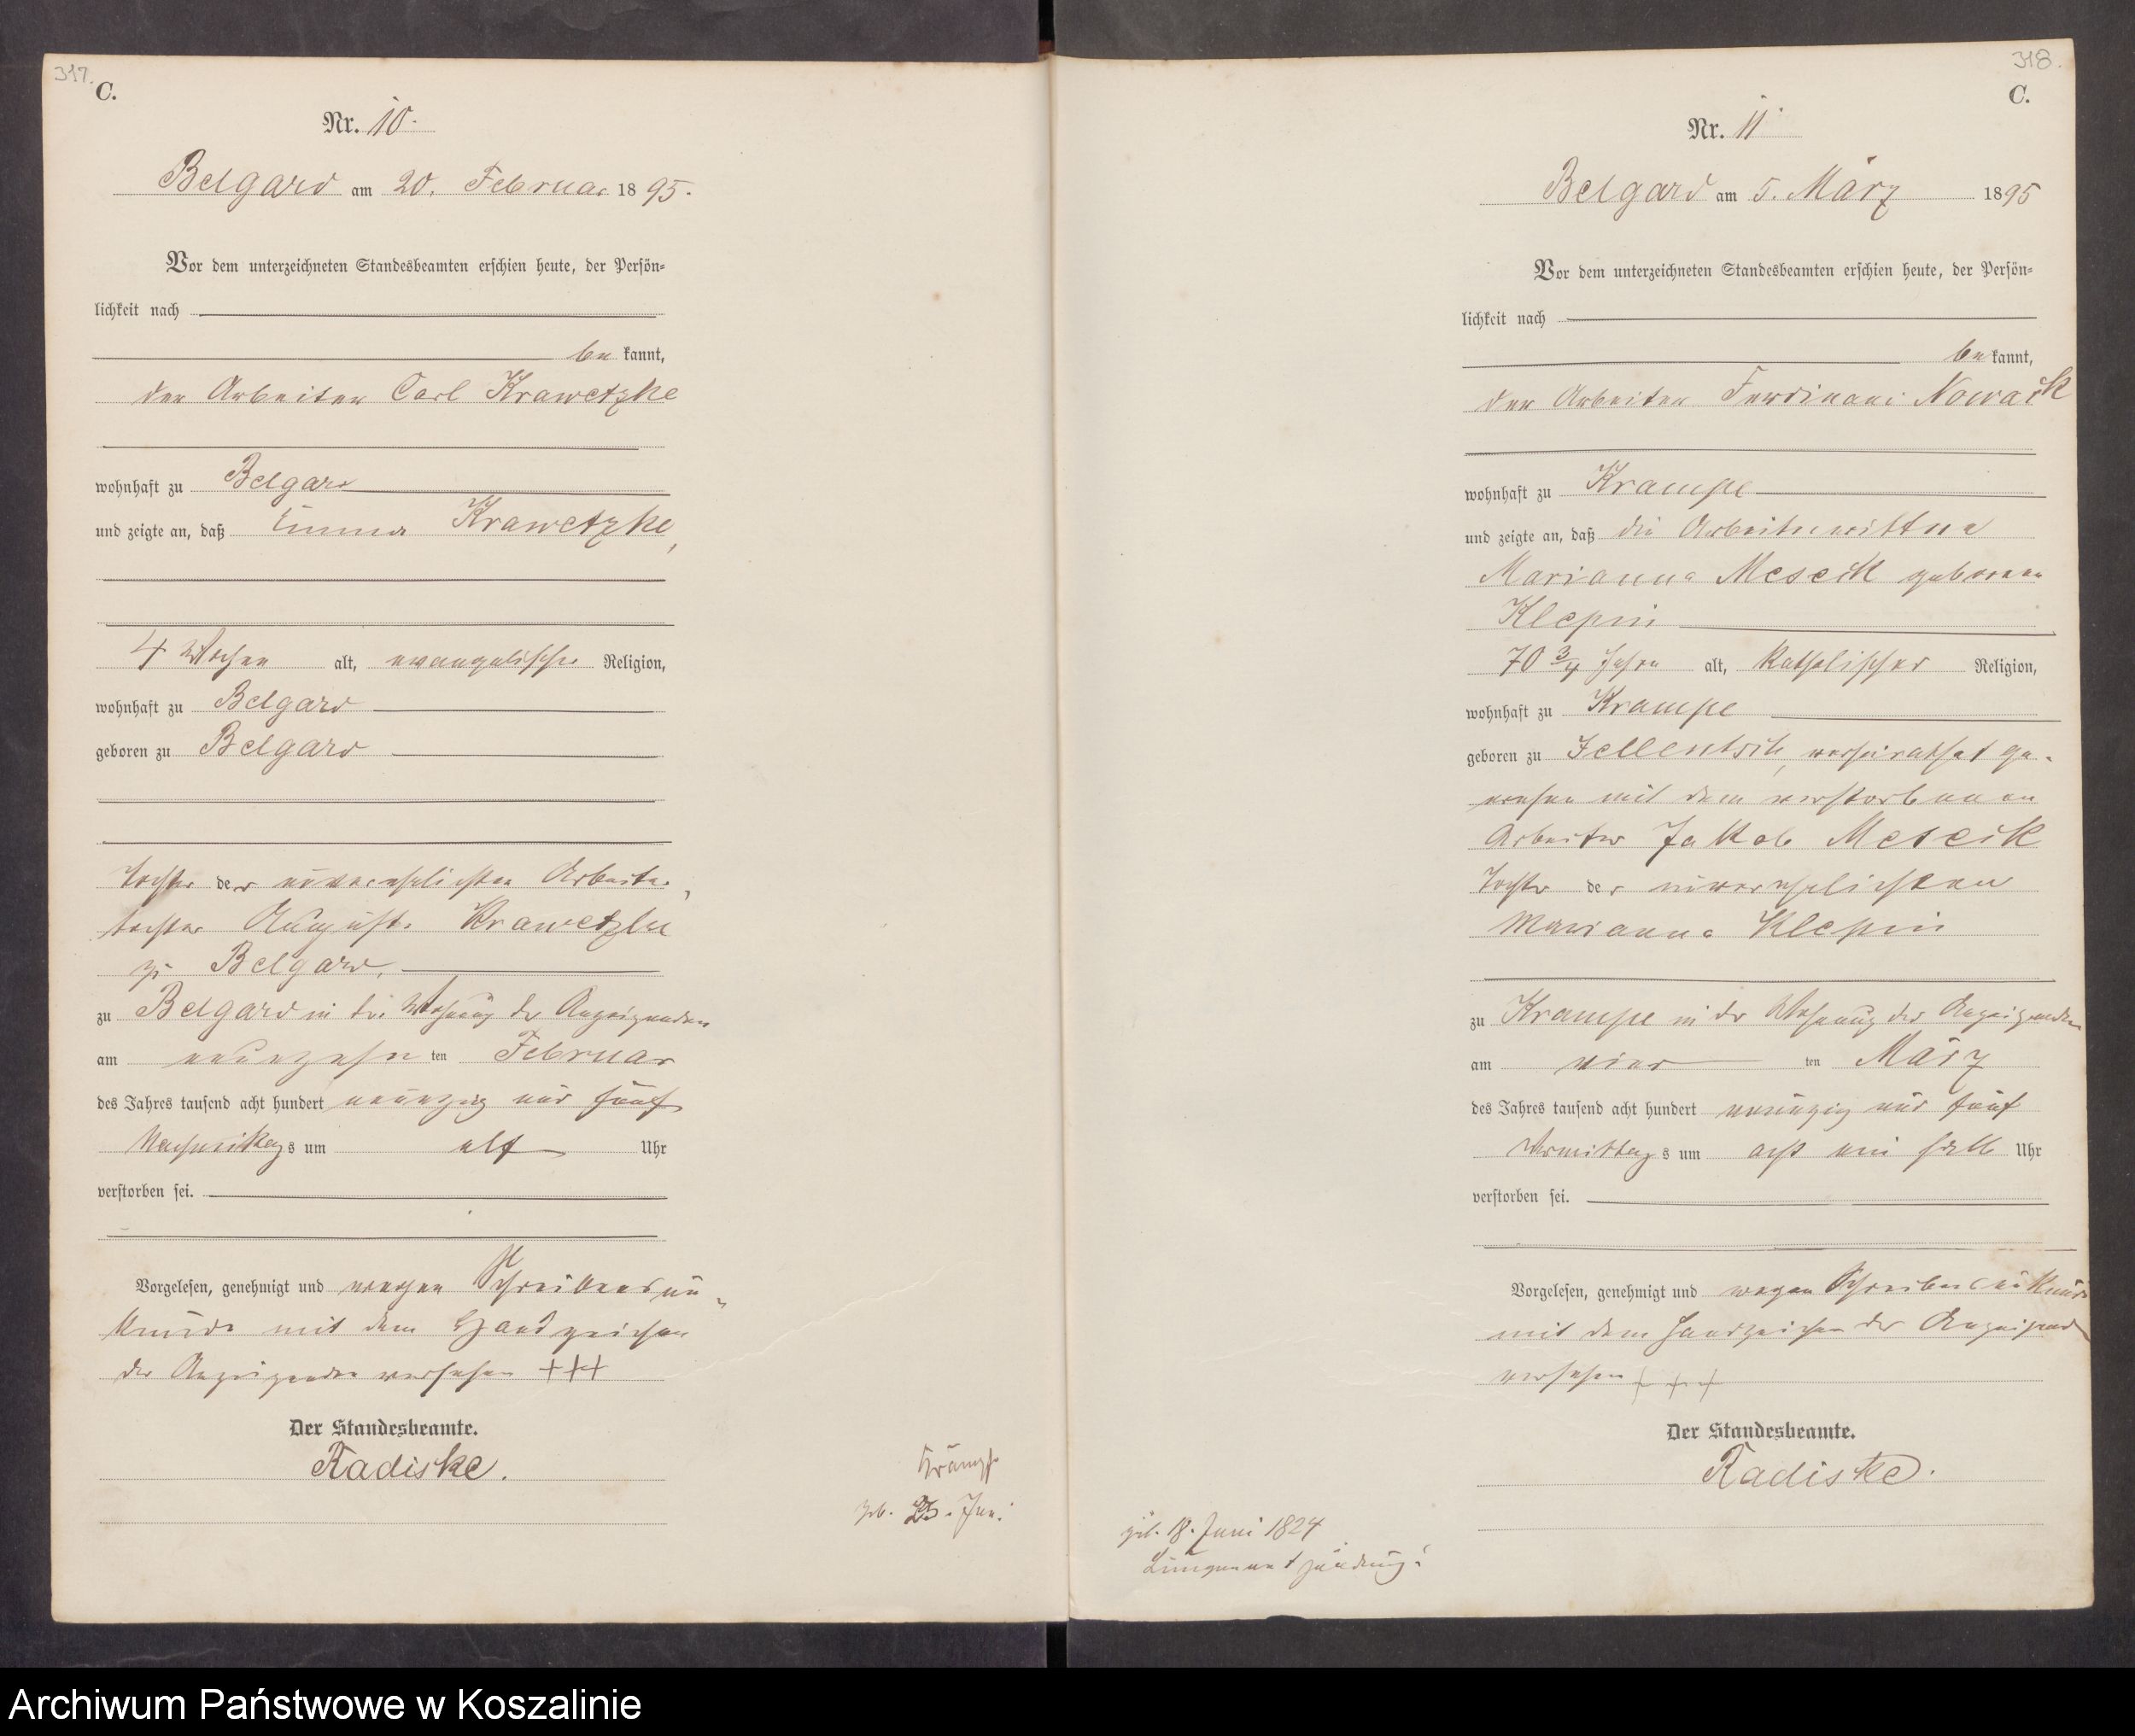 317.
C.
Nr. 10.
Belgard am 20. Februar 1895.
Vor dem unterzeichneten Standesbeamten erschien heute, der Persön-
lichkeit nach
be kannt,
der Arbeiter Carl Krawetzke
wohnhaft zu Belgard
und zeigte an, daß Emma Krawetzke,
4 Wochen alt, evangelischer Religion,
wohnhaft zu Belgard
geboren zu Belgard
Tochter der unverehelichten Arbeiter-
tochter Auguste Krawetzke
zu Belgard,
zu Belgard in der Wohnung des Anzeigenden
am neunzehn ten Februar
des Jahres tausend acht hundert neunzig und fünf
Nachmittags um elf Uhr
verstorben sei.
Vorgelesen, genehmigt und wegen Schreibensun-
kunde mit dem Handzeichen
des Anzeigenden versehen +++
Der Standesbeamte.
Radiske.
Krämpfe
geb. Jan.
318.
C.
Nr. 11
Belgard am 5. März 1895
Vor dem unterzeichneten Standesbeamten erschien heute, der Persön-
lichkeit nach
be kannt,
der Arbeiter Ferdinand Nowack
wohnhaft zu Krampe
und zeigte an, daß die Arbeiterwittwe
Marianna geborene
Klepin
70 3/4 Jahre alt, katholischer Religion,
wohnhaft zu Krampe
geboren zu verheirathet ge-
wesen mit dem verstorbenen
Arbeiter Jakob
Tochter der unverehelichten
Marianna Klepin
zu Krampe in der Wohnung des Anzeigenden
am vier ten März
des Jahres tausend acht hundert neunzig und fünf
Vormittags um acht ein halb Uhr
verstorben sei.
Vorgelesen, genehmigt und wegen Schreibensunkunde
mit dem Handzeichen des Anzeigenden
versehen + + +
Der Standesbeamte.
Radiske.
geb. 18. Juni 1824
Lungenentzündung.
Archiwum Państwowe w Koszalinie